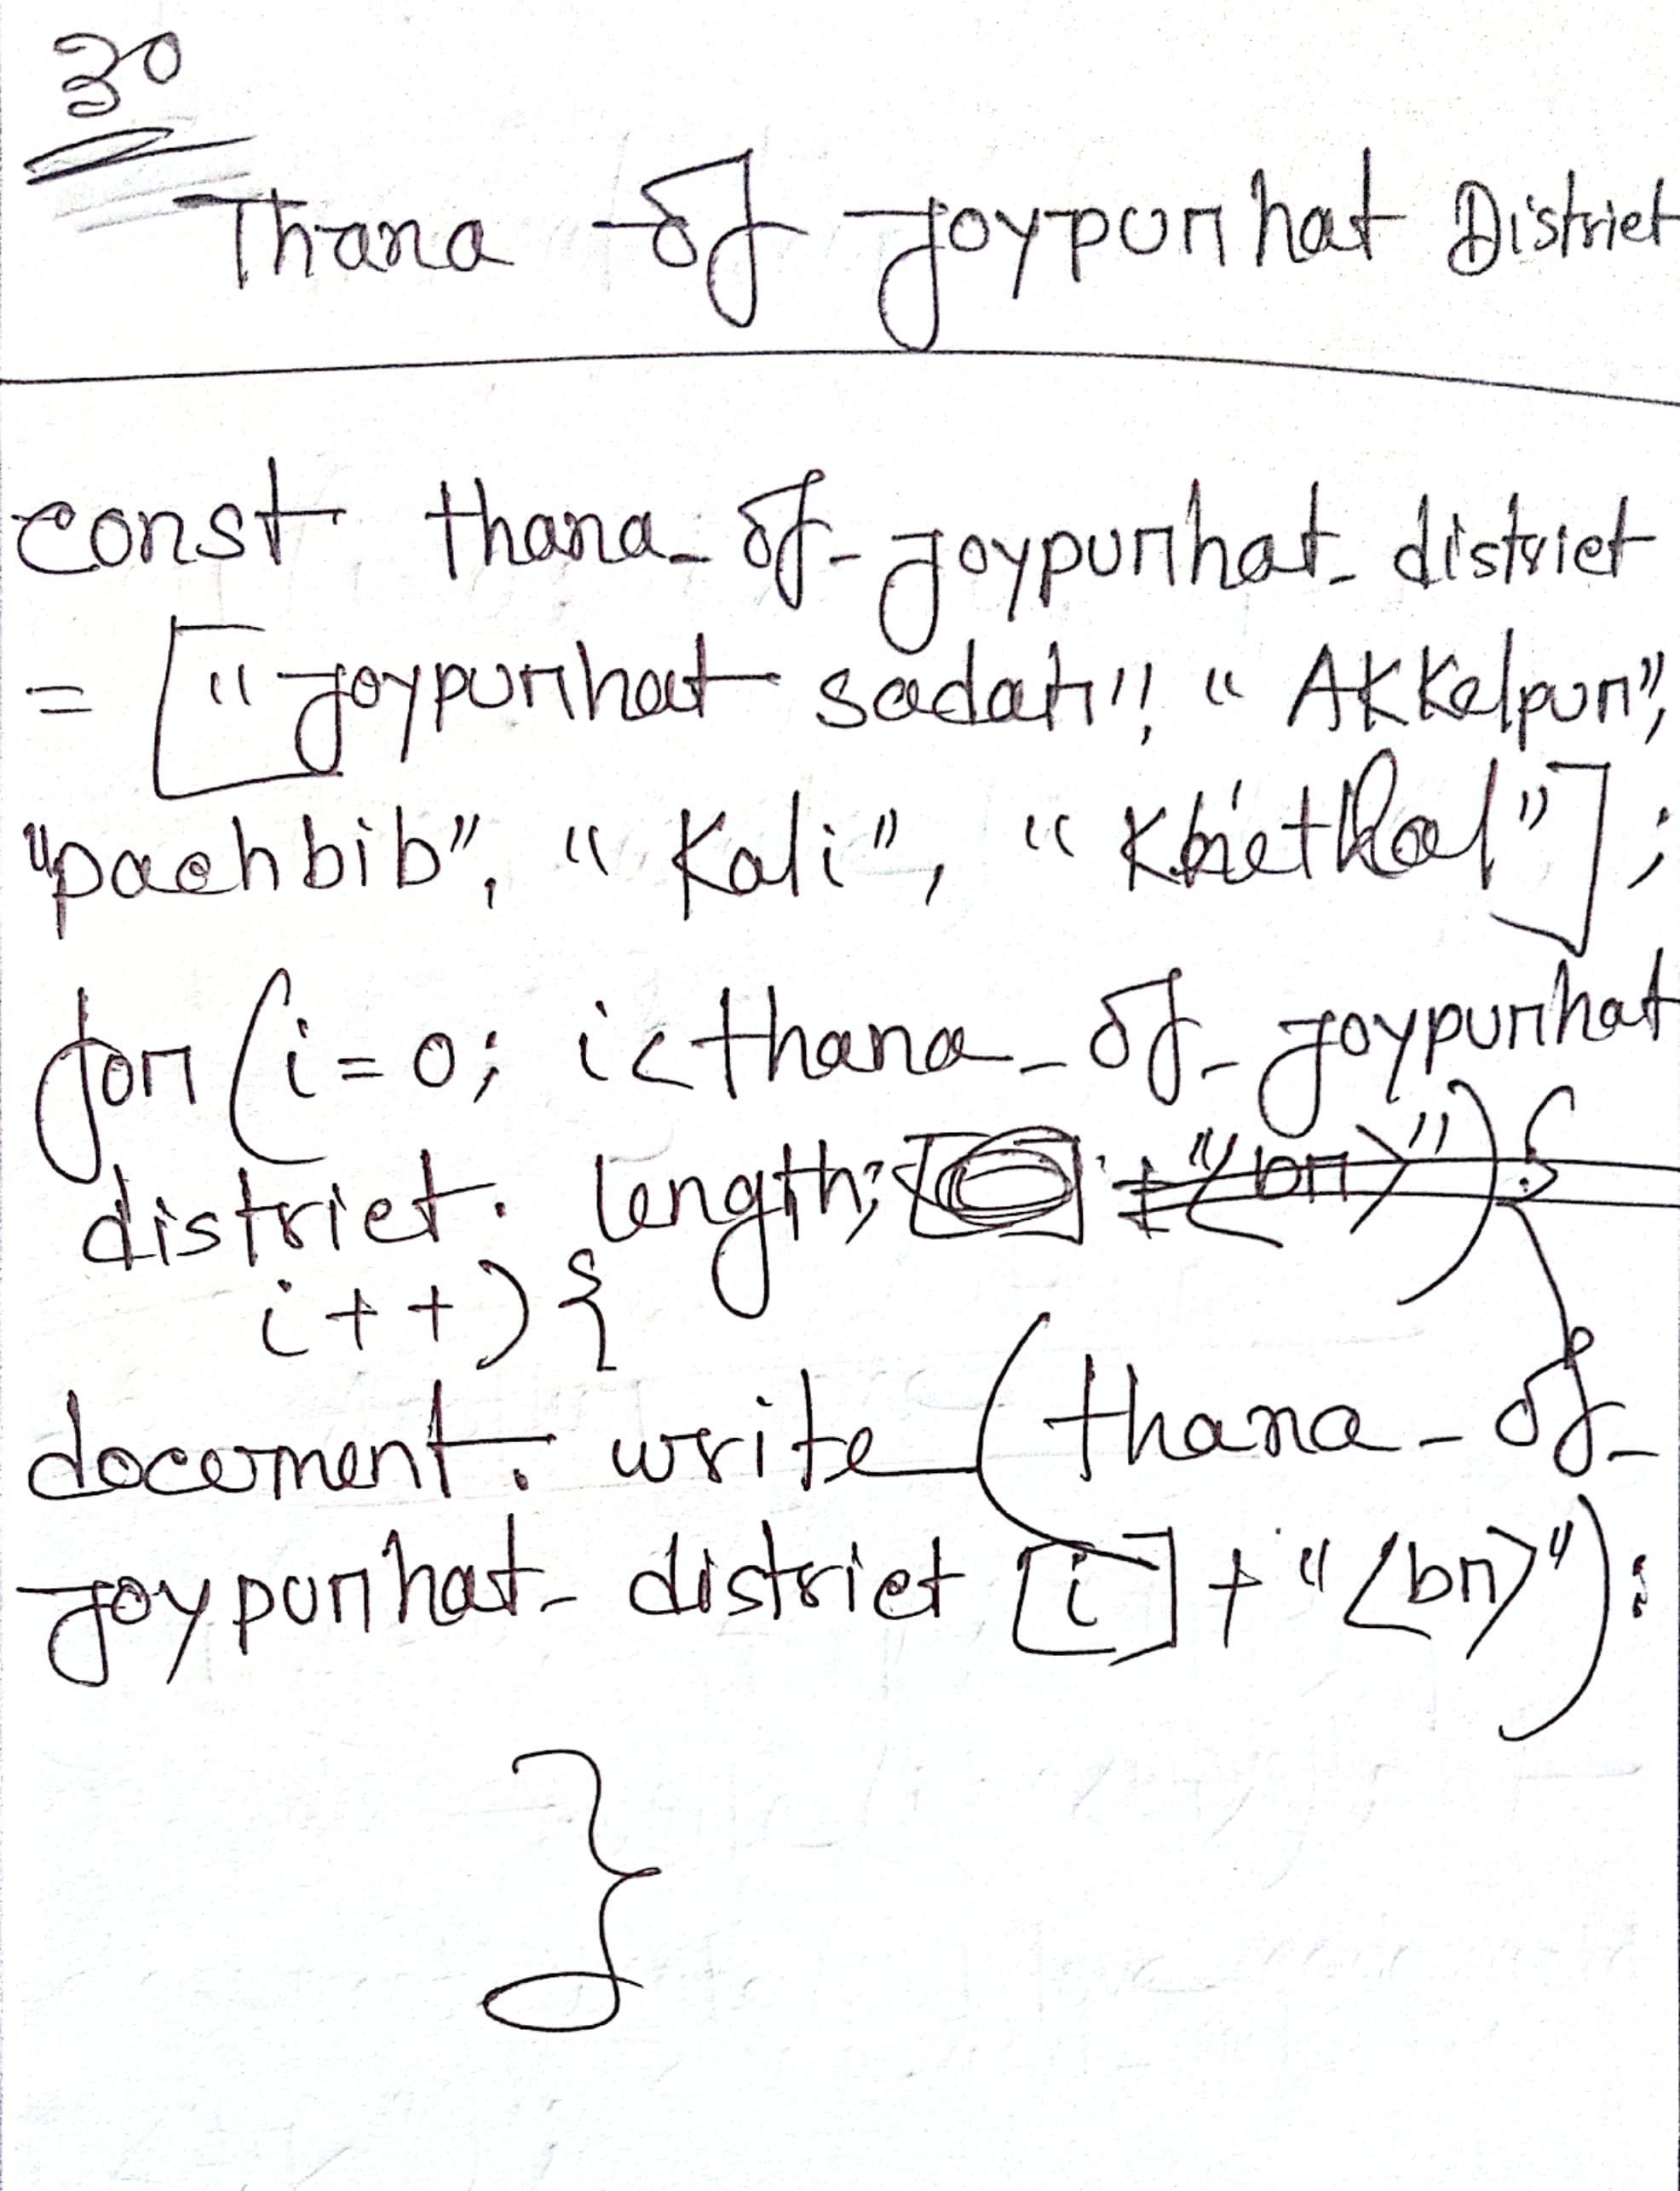 30
Thana of Joypurhat District
const thana_of_Joypurhat_district
= ["Joypurhat sadar", "Akkelpur",
"pachbib", "Kali", "Khethal"];
for (i=0; i<thana_of_Joypurhat
district. length;
i++) {
document. write (thana_of_
Joypurhat_district [i] + "<br>");
}